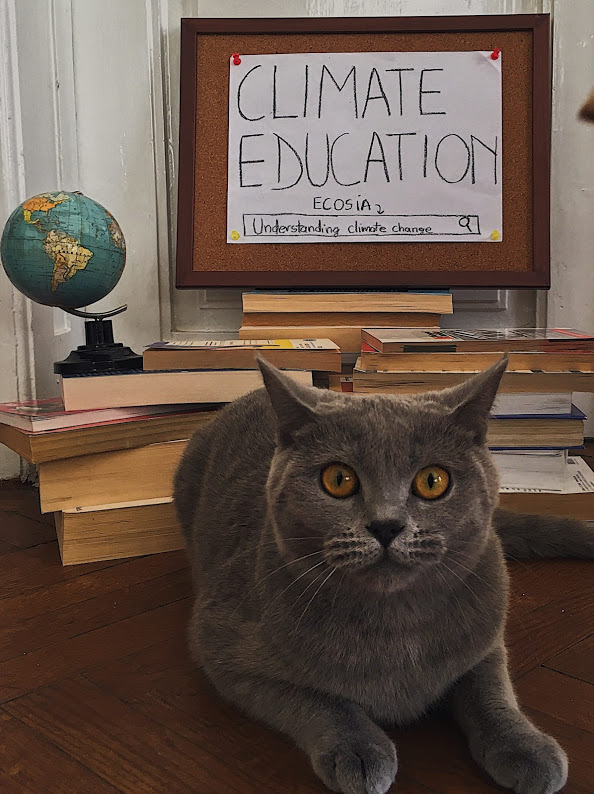 CLIMATE
EDUCATION
ECOSIA
Understanding climate change